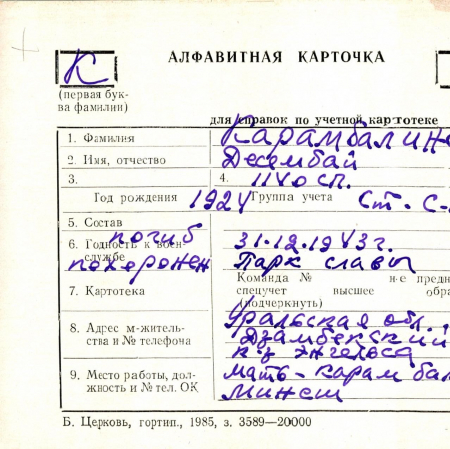 К
АЛФАВИТНАЯ КАРТОЧКА
(первая бук-
ва фамилии)
для справок по учетной картотеке
1. Фамилия Карамбалине
2. Имя, отчество Десембай
3. 4. 1140 сп.
Год рождения 1924 Группа учета Ст. С-
5. Состав
6. Годность к воен-
службе погиб 31.12.1943г.
похоронен Парк славы
7. Картотека Команда № не предн
спецучет высшее обра
(подчеркнуть)
8. Адрес м-житель-
ства и № телефона Уральская обл.,
Дзамбекский
к-з Энгельса
9. Место работы, дол-
жность и № тел. ОК мать - Карамбал
Минеш
Б. Церковь, гортип., 1985, з. 3589—20000